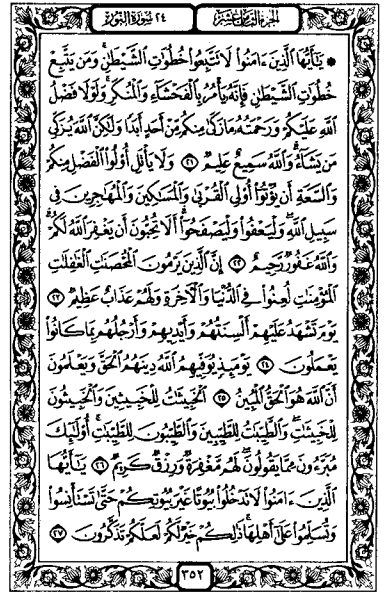 الجزء الثامن عشر ٢٤ سورة النور
۞ يَـٰٓأَيُّهَا ٱلَّذِينَ ءَامَنُوا۟ لَا تَتَّبِعُوا۟ خُطُوَٰتِ ٱلشَّيْطَـٰنِ ۚ وَمَن يَتَّبِعْ
خُطُوَٰتِ ٱلشَّيْطَـٰنِ فَإِنَّهُۥ يَأْمُرُ بِٱلْفَحْشَآءِ وَٱلْمُنكَرِ ۚ وَلَوْلَا فَضْلُ
ٱللَّهِ عَلَيْكُمْ وَرَحْمَتُهُۥ مَا زَكَىٰ مِنكُم مِّنْ أَحَدٍ أَبَدًا وَلَـٰكِنَّ ٱللَّهَ يُزَكِّى
مَن يَشَآءُ ۗ وَٱللَّهُ سَمِيعٌ عَلِيمٌ ٢١ وَلَا يَأْتَلِ أُو۟لُوا۟ ٱلْفَضْلِ مِنكُمْ
وَٱلسَّعَةِ أَن يُؤْتُوٓا۟ أُو۟لِى ٱلْقُرْبَىٰ وَٱلْمَسَـٰكِينَ وَٱلْمُهَـٰجِرِينَ فِى
سَبِيلِ ٱللَّهِ ۖ وَلْيَعْفُوا۟ وَلْيَصْفَحُوٓا۟ ۗ أَلَا تُحِبُّونَ أَن يَغْفِرَ ٱللَّهُ لَكُمْ ۗ
وَٱللَّهُ غَفُورٌ رَّحِيمٌ ٢٢ إِنَّ ٱلَّذِينَ يَرْمُونَ ٱلْمُحْصَنَـٰتِ ٱلْغَـٰفِلَـٰتِ
ٱلْمُؤْمِنَـٰتِ لُعِنُوا۟ فِى ٱلدُّنْيَا وَٱلْـَٔاخِرَةِ وَلَهُمْ عَذَابٌ عَظِيمٌ ٢٣
يَوْمَ تَشْهَدُ عَلَيْهِمْ أَلْسِنَتُهُمْ وَأَيْدِيهِمْ وَأَرْجُلُهُم بِمَا كَانُوا۟
يَعْمَلُونَ ٢٤ يَوْمَئِذٍ يُوَفِّيهِمُ ٱللَّهُ دِينَهُمُ ٱلْحَقَّ وَيَعْلَمُونَ
أَنَّ ٱللَّهَ هُوَ ٱلْحَقُّ ٱلْمُبِينُ ٢٥ ٱلْخَبِيثَـٰتُ لِلْخَبِيثِينَ وَٱلْخَبِيثُونَ
لِلْخَبِيثَـٰتِ ۖ وَٱلطَّيِّبَـٰتُ لِلطَّيِّبِينَ وَٱلطَّيِّبُونَ لِلطَّيِّبَـٰتِ ۚ أُو۟لَـٰٓئِكَ
مُبَرَّءُونَ مِمَّا يَقُولُونَ ۖ لَهُم مَّغْفِرَةٌ وَرِزْقٌ كَرِيمٌ ٢٦ يَـٰٓأَيُّهَا
ٱلَّذِينَ ءَامَنُوا۟ لَا تَدْخُلُوا۟ بُيُوتًا غَيْرَ بُيُوتِكُمْ حَتَّىٰ تَسْتَأْنِسُوا۟
وَتُسَلِّمُوا۟ عَلَىٰٓ أَهْلِهَا ۚ ذَٰلِكُمْ خَيْرٌ لَّكُمْ لَعَلَّكُمْ تَذَكَّرُونَ ٢٧
٣٥٢